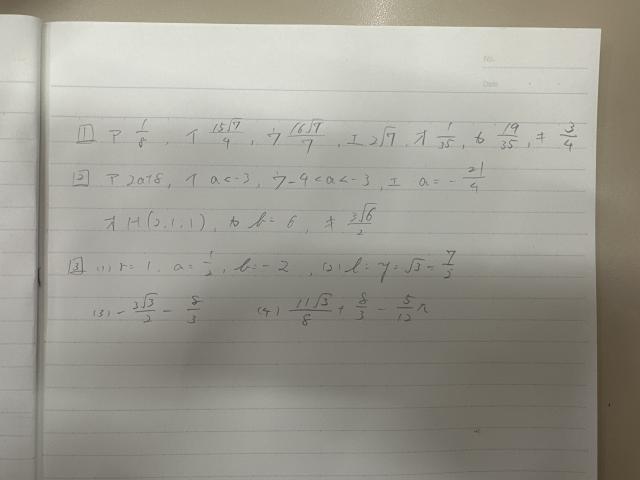 No.
Date
1 ア 1/8, イ 15√7/4, ウ 16√7/7, エ 2√7, オ 1/35, カ 19/35, キ 3/4
2 ア 2a+8, イ a<-3, ウ -4<a<-3, エ a=-21/4
オ H(2,1,1), カ b=6, キ 3√6/2
3 (1) r=1, a=1/2, b=-2, (2) l: y=√3-7/2
(3) -3√3/2-8/3 (4) 11√3/8+8/3-5/12π